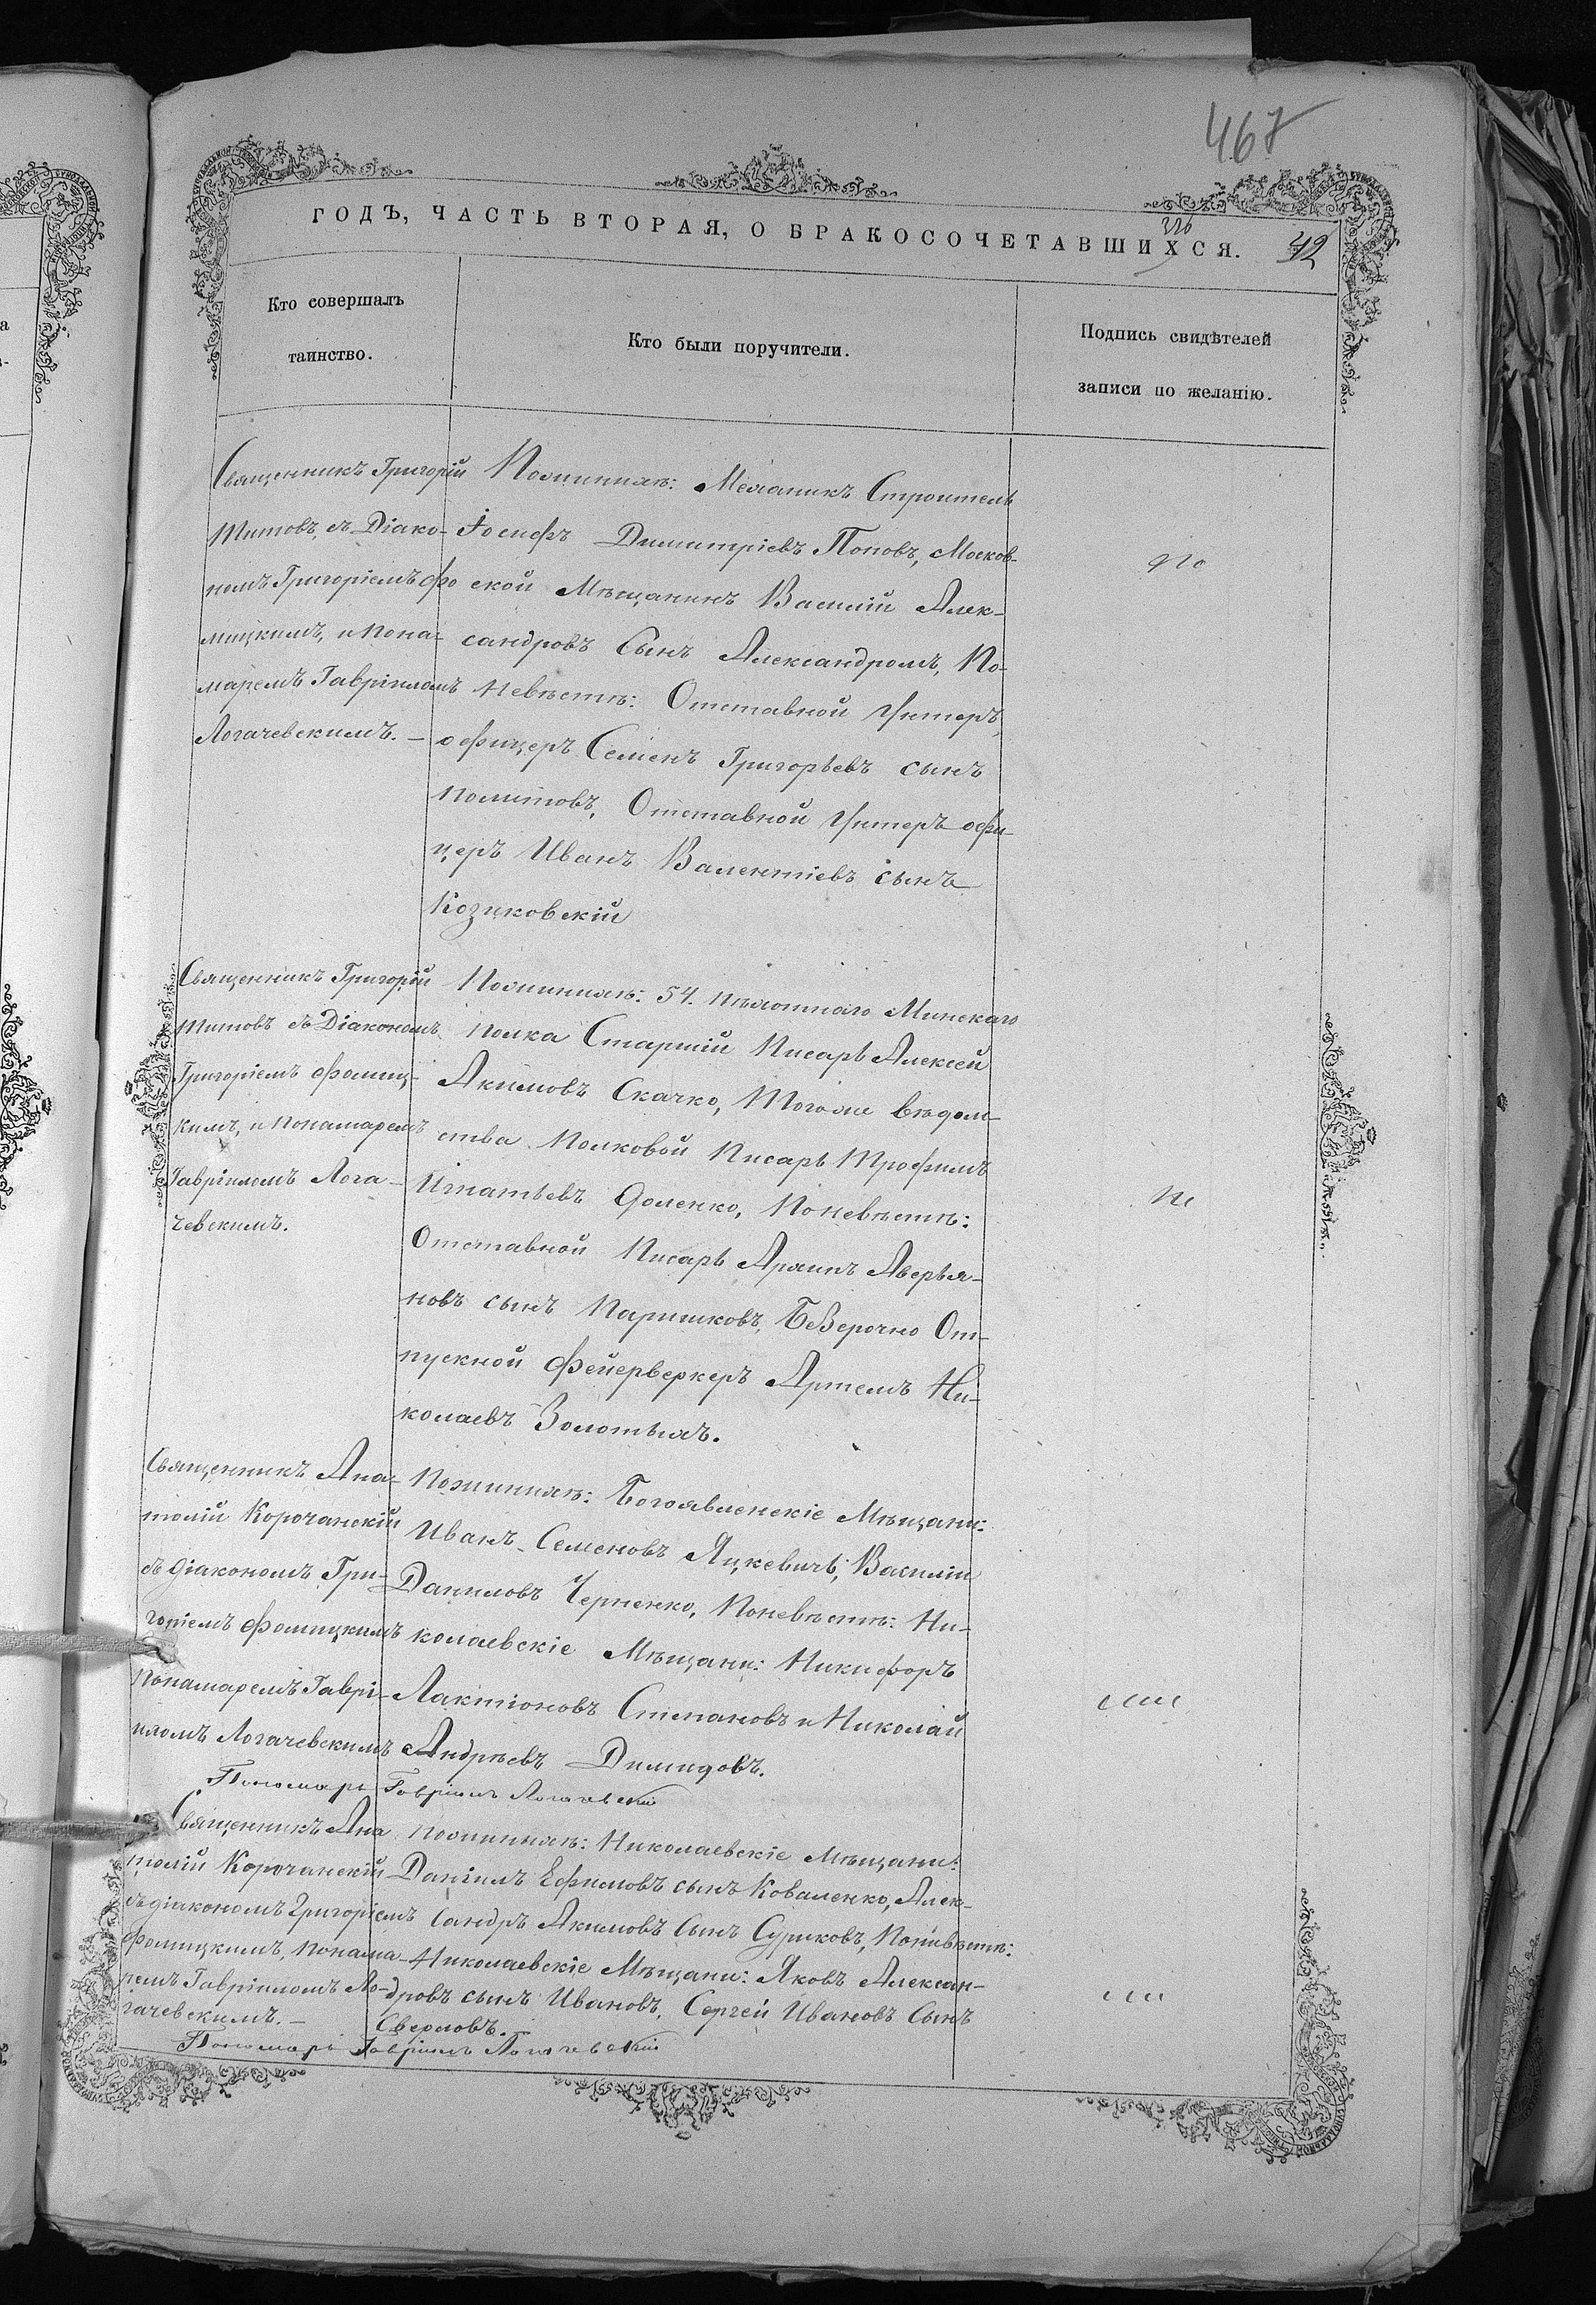 467
ГОДЪ, ЧАСТЬ ВТОРАЯ, О БРАКОСОЧЕТАВШИХСЯ. 42
Кто совершалъ
таинство.
Кто были поручители.
Подпись свидѣтелей
записи по желанію.
Священникъ Григорій
Титовъ, съ Діако-
номъ Григоріемъ Фо
мицкимъ, и Пона-
маремъ Гавріиломъ
Логачевскимъ. —
По женихѣ: Механикъ Строитель
Іосифъ Димитріевъ Поповъ, Москов-
ской Мѣщанинъ Василій Алек-
сандровъ Сынъ Александромъ, По-
невѣстѣ: Отставной Унтеръ
офицеръ Семенъ Григорьевъ сынъ
Политовъ, Отставной Унтеръ офи-
церъ Иванъ Валентіевъ сынъ
Козиковскій
Священникъ Григорій
Титовъ съ Діакономъ
Григоріемъ Фомиц-
кимъ, и Понамаремъ
Гавріиломъ Лога-
чевскимъ.
По женихѣ: 54. пѣхотнаго Минскаго
полка Старшій Писарь Алексей
Акимовъ Скачко, Тогоже вѣдом-
ства Полковой Писарь Трофимъ
Игнатьевъ Доленко, По невѣстѣ:
Отставной Писарь Архипъ Аверья-
новъ сынъ Паршковъ, Безсрочно От-
пускной Фейерверкеръ Артемъ Ни-
колаевъ Золотыхъ.
Священникъ Ана-
толій Корочанскій
съ діакономъ Гри-
горіемъ Фомицкимъ
Понамаремъ Гаврі-
иломъ Логачевскимъ
По женихѣ: Богоявленскіе Мѣщани:
Иванъ Семеновъ Яцкевичъ, Василій
Даниловъ Черненко, По невѣстѣ: Ни-
колаевскіе Мѣщани: Никифоръ
Лактіоновъ Степановъ и Николай
Андрѣевъ Димидовъ.
Пономарь Гавріилъ Логачевскій
Священникъ Ана
толій Корочанскій
съ діакономъ Григоріемъ
Фомицкимъ, Понама-
ремъ Гавріиломъ Ло-
гачевскимъ. —
По женихѣ: Николаевскіе Мѣщани:
Даніилъ Ефимовъ сынъ Коваленко, Алек-
сандръ Акимовъ Сынъ Суриковъ, По невѣстѣ:
Николаевскіе Мѣщани: Яковъ Алексан-
дровъ сынъ Ивановъ, Сергей Ивановъ Сынъ
Сверловъ.
Пономарь Гавріилъ Логачевскій